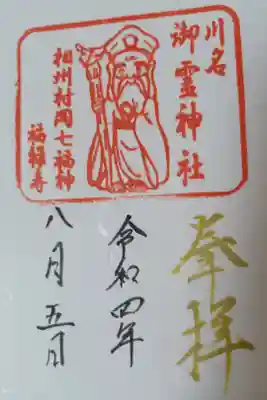 川名
御霊神社
相州村岡七福神
福禄寿
奉拝
令和四年
八月五日